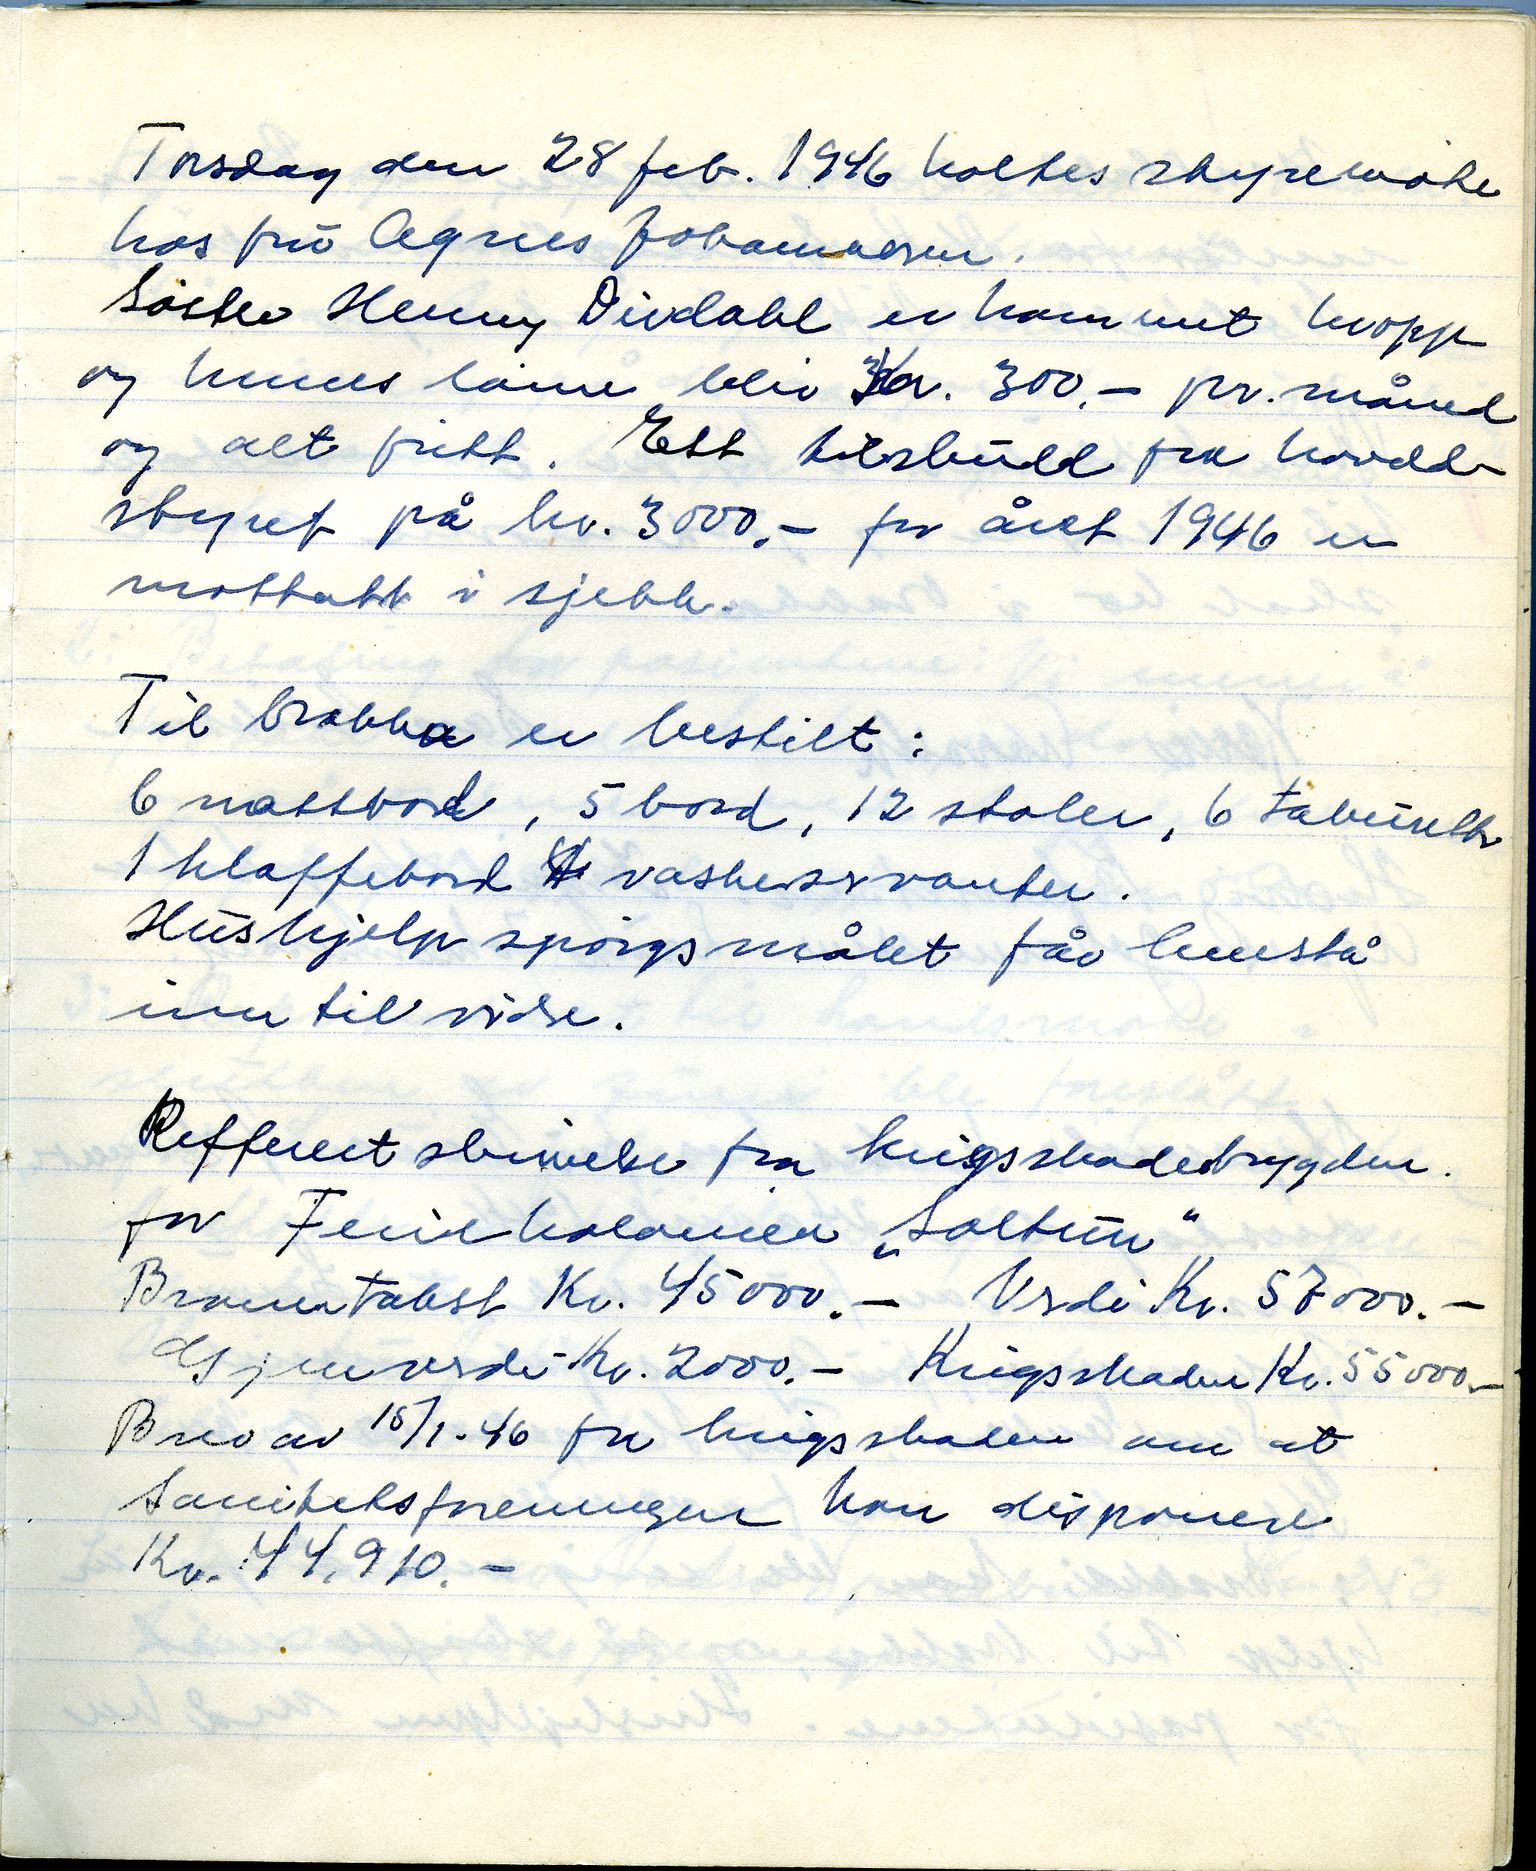 Torsdag den 28 feb. 1946 holtes styremøte
hos frü Agnes Johannesen.
Søster Henny Divdahl er kommet hropp
og hennes lønn blir Kr. 300.- pr. måned
og alt fritt. Ett tilskudd fra hovdd-
styret på kr. 3000.- for året 1946 er
mottatt i sjekk.
Til brakka er bestilt:
6 nattbord, 5 bord, 12 stoler, 6 taburetter
1 klaffebord vaskeservanter.
Hüshjelp spørgsmålet får henstå
inn til vidre.
Refferert skrivelse fra krigsskadetrygden.
for Feriekolonien „Soltün"
Branntakst Kr. 45000.- Verdi Kr. 57000.-
Gjenverdi Kr. 2000.- Krigsskaden Kr. 55000.-
Brev av 15/1-46 fra krigsskaden om at
Sanitetsforeningen kan disponere
Kr. 44.910.-